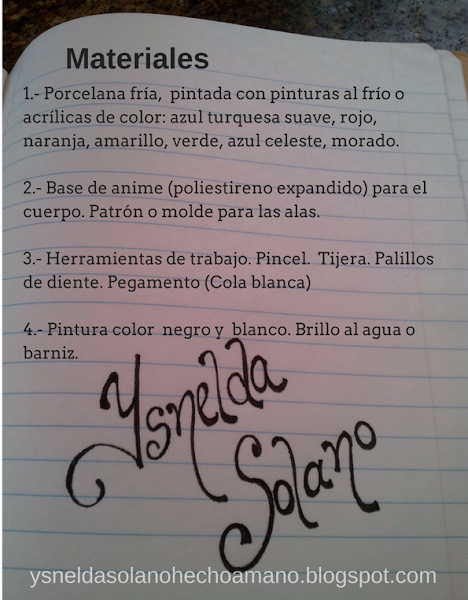 Materiales
1.- Porcelana fría, pintada con pinturas al frío o
acrílicas de color: azul turquesa suave, rojo,
naranja, amarillo, verde, azul celeste, morado.
2.- Base de anime (poliestireno expandido) para el
cuerpo. Patrón o molde para las alas.
3.- Herramientas de trabajo. Pincel. Tijera. Palillos
de diente. Pegamento (Cola blanca)
4.- Pintura color negro y blanco. Brillo al agua o
barniz.
Ysnelda
Solano
ysneldasolanohechoamano.blogspot.com